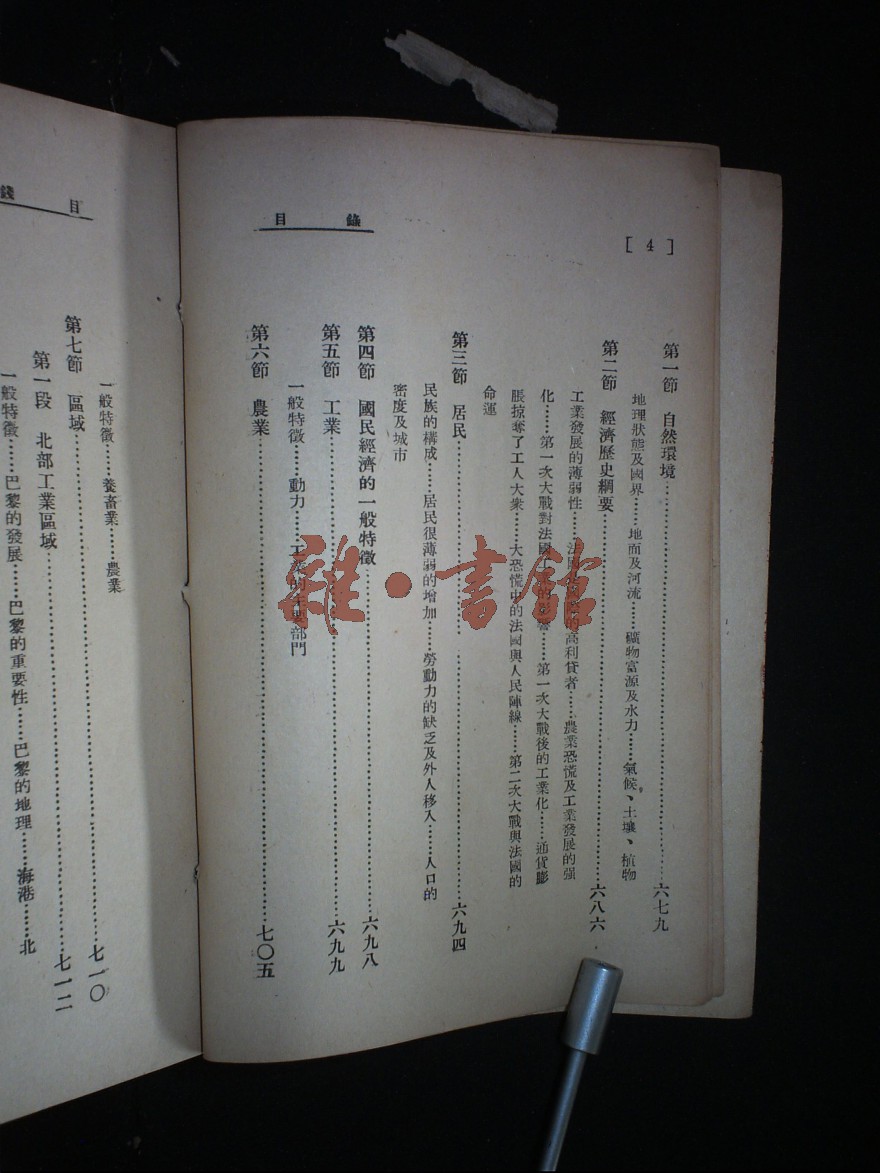 [ 4 ]
目錄
第一節 自然環境……六七九
地理狀態及國界……地面及河流……礦物富源及水力……氣候、土壤、植物
第二節 經濟歷史綱要……六八六
工業發展的薄弱性……法國 的高利貸者……農業恐慌及工業發展的强
化……第一次大戰對法國工 的影響……第一次大戰後的工業化……通貨膨
脹掠奪了工人大衆……大恐慌中的法國與人民陣線……第二次大戰與法國的
命運
第三節 居民……六九四
民族的構成……居民很薄弱的增加……勞動力的缺乏及外人移入……人口的
密度及城市
第四節 國民經濟的一般特徵……六九八
第五節 工業……六九九
一般特徵……動力……工業的主要部門
第六節 農業……七〇五
目錄
一般特徵……養畜業……農業
第七節 區域……七一〇
第一段 北部工業區域……七一二
一般特徵……巴黎的發展……巴黎的重要性……巴黎的地理……海港……北
雜·書館